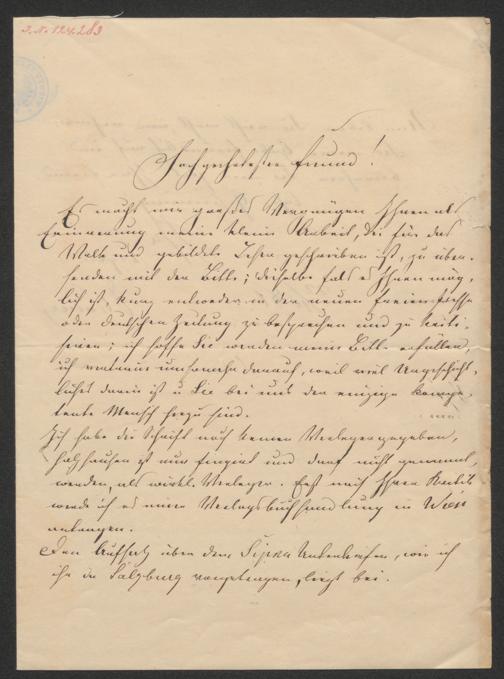 J.N. 124.283
Hochgeehrtester Freund!
Es macht mir großes Vergnügen Ihnen als
Erinnerung meine kleine Arbeit, die für das
Volk und gebildete Leser geschrieben ist, zu über-
senden mit der Bitte; dieselbe falls es Ihnen mög-
lich ist, kurz entweder in der neuen freien Presse
oder deutschen Zeitung zu besprechen und zu kriti-
sieren; ich hoffe Sie werden meine Bitte erfüllen,
ich vertraue umsomehr darauf, weil viel
darin ist u Sie bei uns der einzige kompe-
tente Mensch hiezu sind.
Ich habe die Schrift noch keinem Verleger gegeben,
ist nur fingirt und darf nicht genannt
werden, als wirkl. Verleger. Erst nach Ihrer Kritik
werde ich es einer Verlagsbuchhandlung in Wien
antragen.
Den Aufsatz über den Sipka, wie ich
ihn in Salzburg vorgetragen, liegt bei.